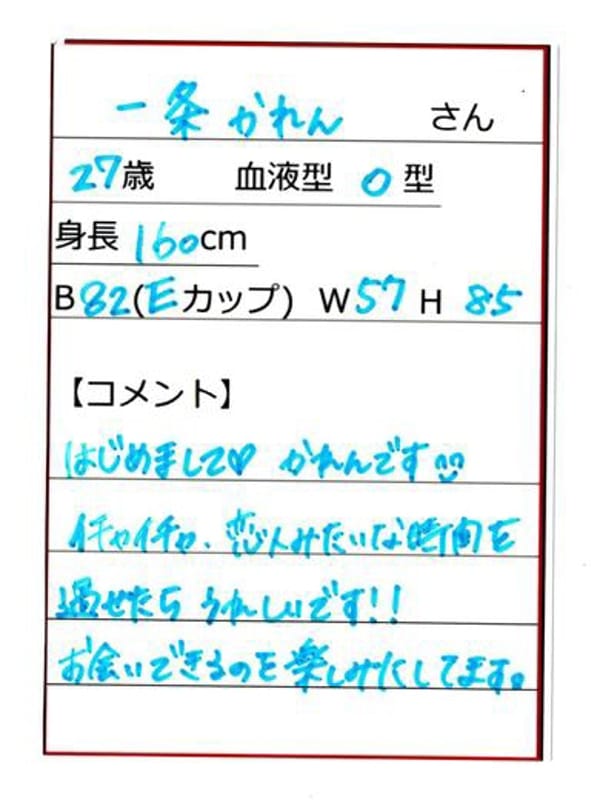 一条 かれん さん
27歳 血液型 O 型
身長 160cm
B 82(Eカップ) W57 H 85
【コメント】
はじめまして♡ かれんです
イチャイチャ、恋人みたいな時間を
過せたら うれしいです!!
お会いできるのを楽しみにしてます。